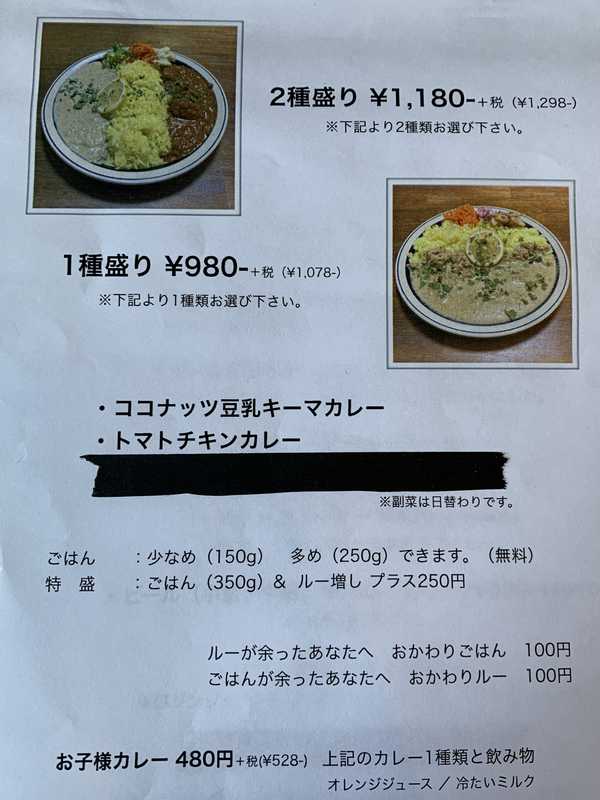 2種盛り ¥1,180-+税（¥1,298-）
※下記より2種類お選び下さい。
1種盛り ¥980-+税（¥1,078-）
※下記より1種類お選び下さい。
・ココナッツ豆乳キーマカレー
・トマトチキンカレー
※副菜は日替わりです。
ごはん　：少なめ（150g）　多め（250g）できます。（無料）
特　盛　：ごはん（350g）＆ ルー増し プラス250円
ルーが余ったあなたへ　おかわりごはん　100円
ごはんが余ったあなたへ　おかわりルー　100円
お子様カレー 480円+税(¥528-)　上記のカレー1種類と飲み物
オレンジジュース ／ 冷たいミルク